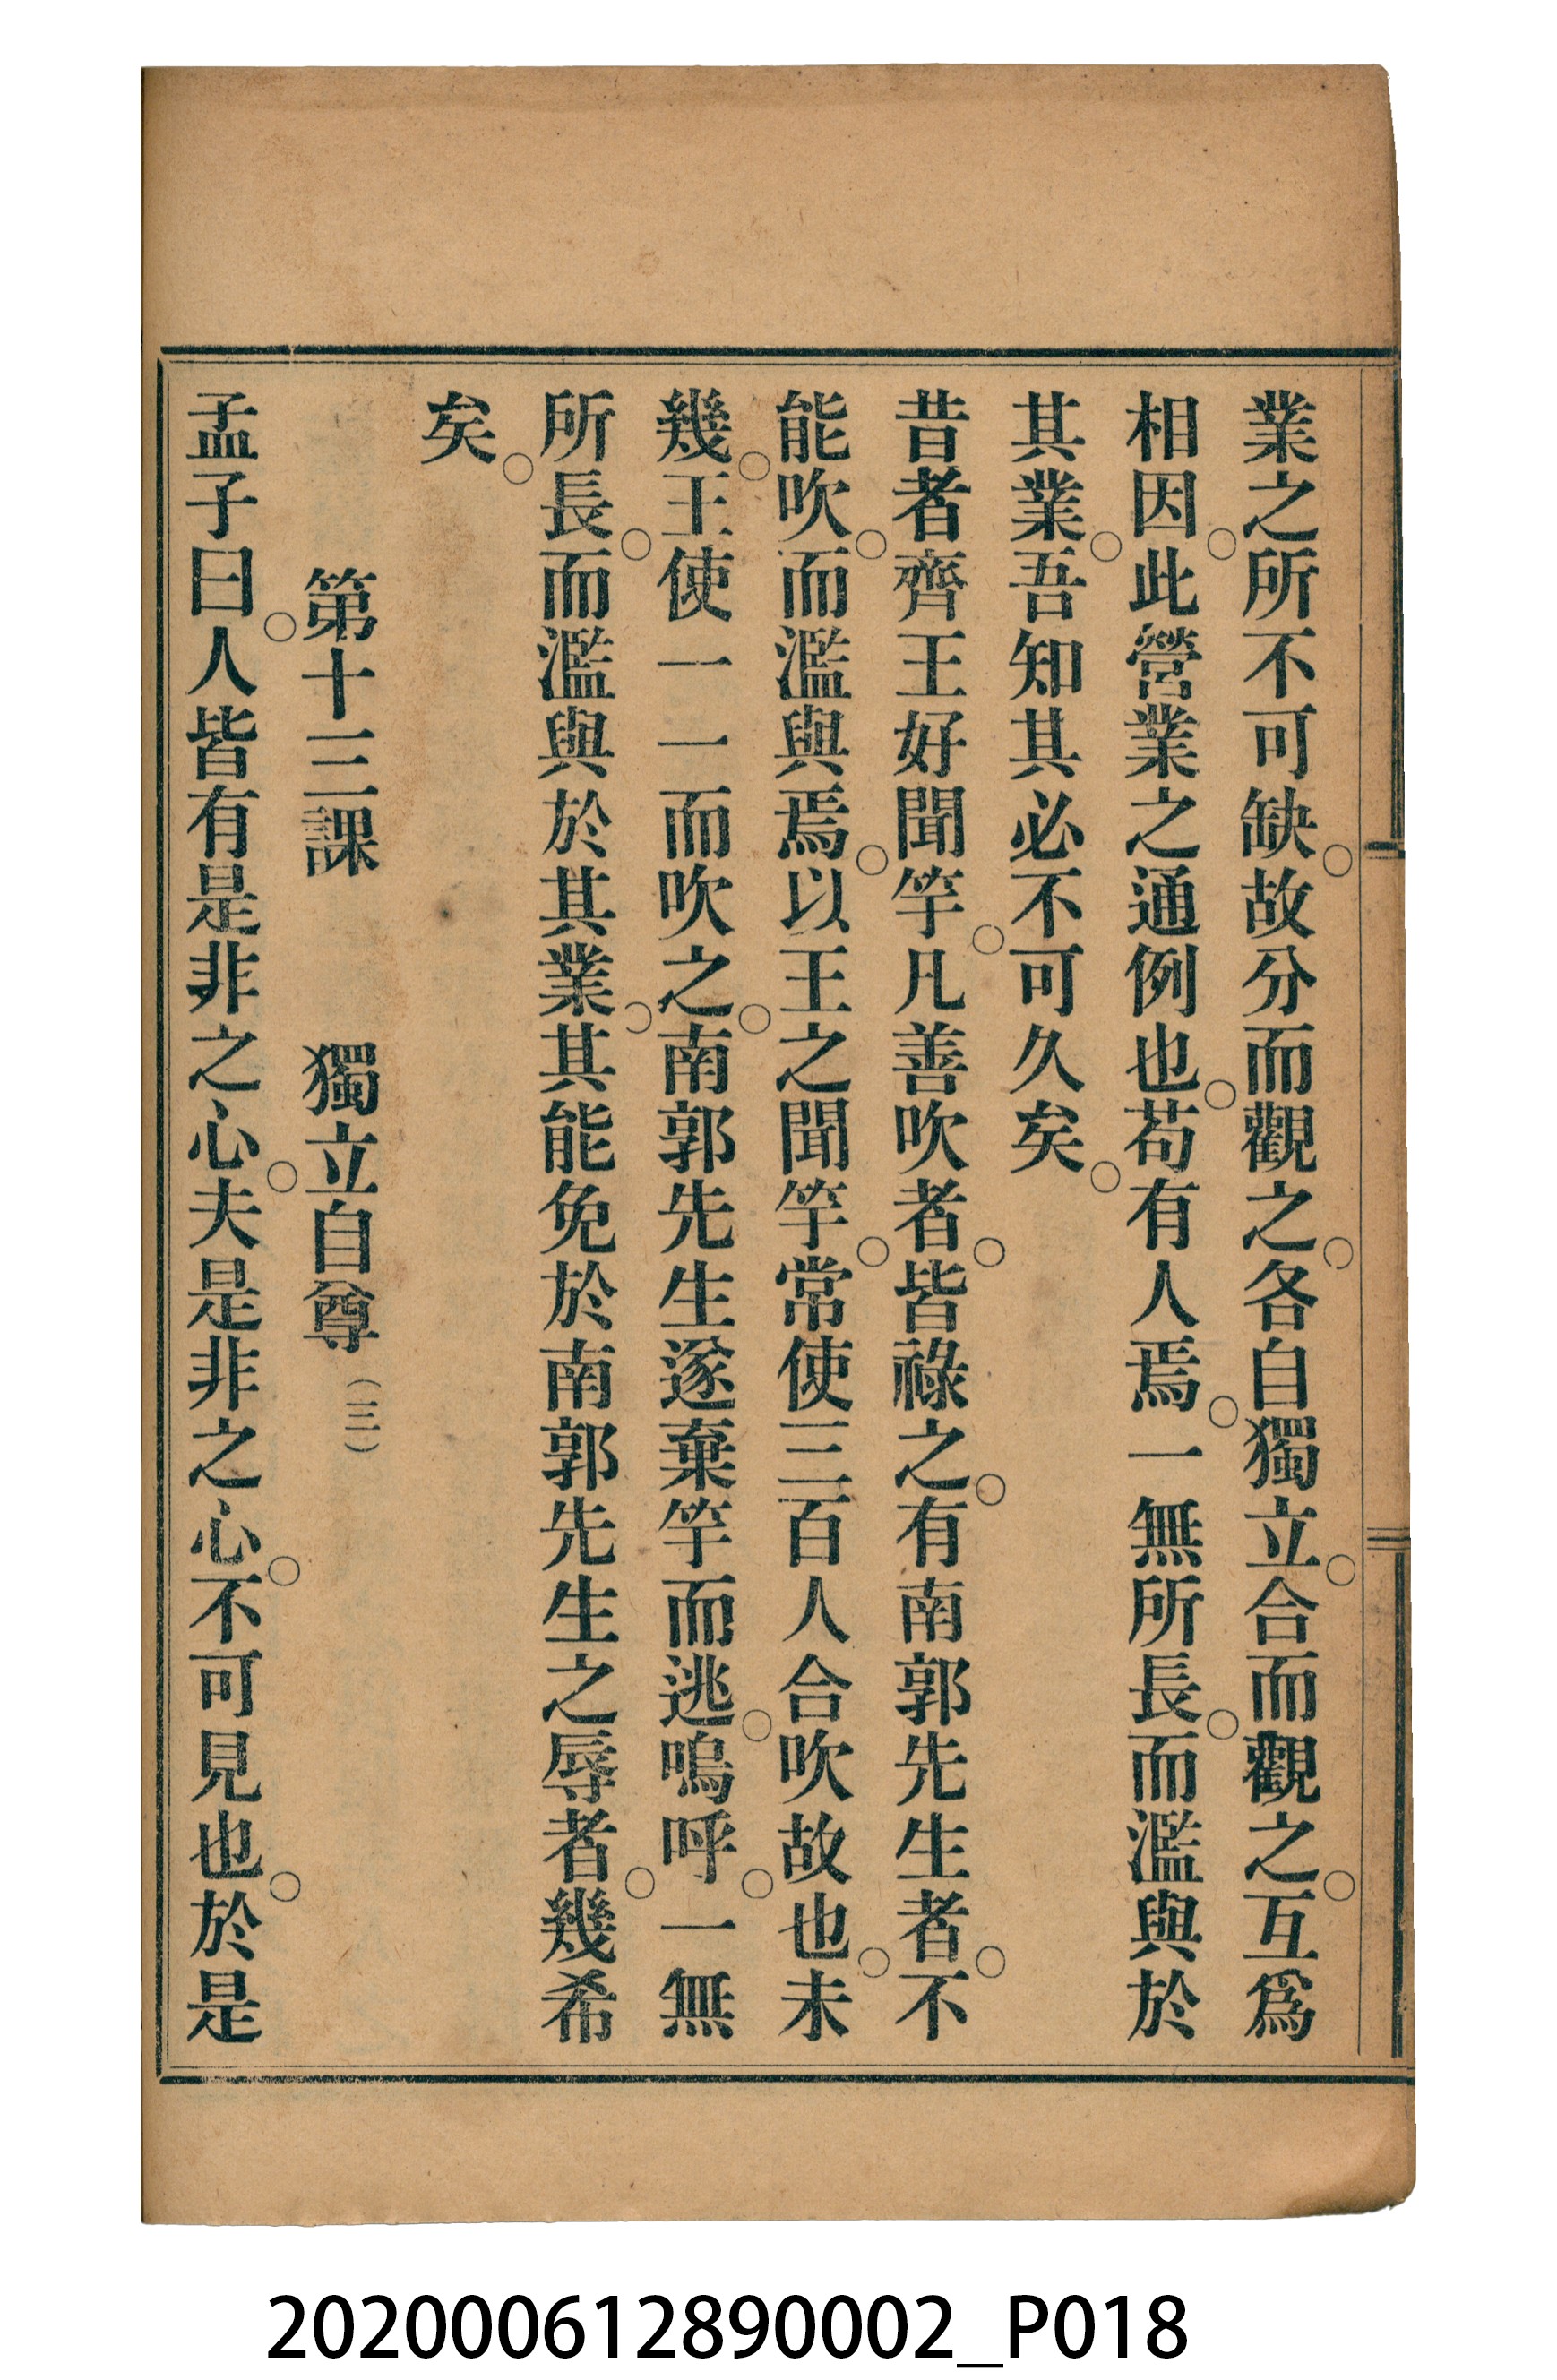 業之所不可缺。故分而觀之。各自獨立。合而觀之。互爲
相因。此營業之通例也。苟有人焉。一無所長。而濫與於
其業。吾知其必不可久矣。
昔者齊王好聞竽。凡善吹者。皆祿之。有南郭先生者。不
能吹。而濫與焉。以王之聞竽。常使三百人合吹故也。未
幾。王使一一而吹之。南郭先生遂棄竽而逃。嗚呼。一無
所長。而濫與於其業。其能免於南郭先生之辱者。幾希
矣。
第十三課　獨立自尊（三）
孟子曰。人皆有是非之心。夫是非之心。不可見也。於是
202000612890002_P018